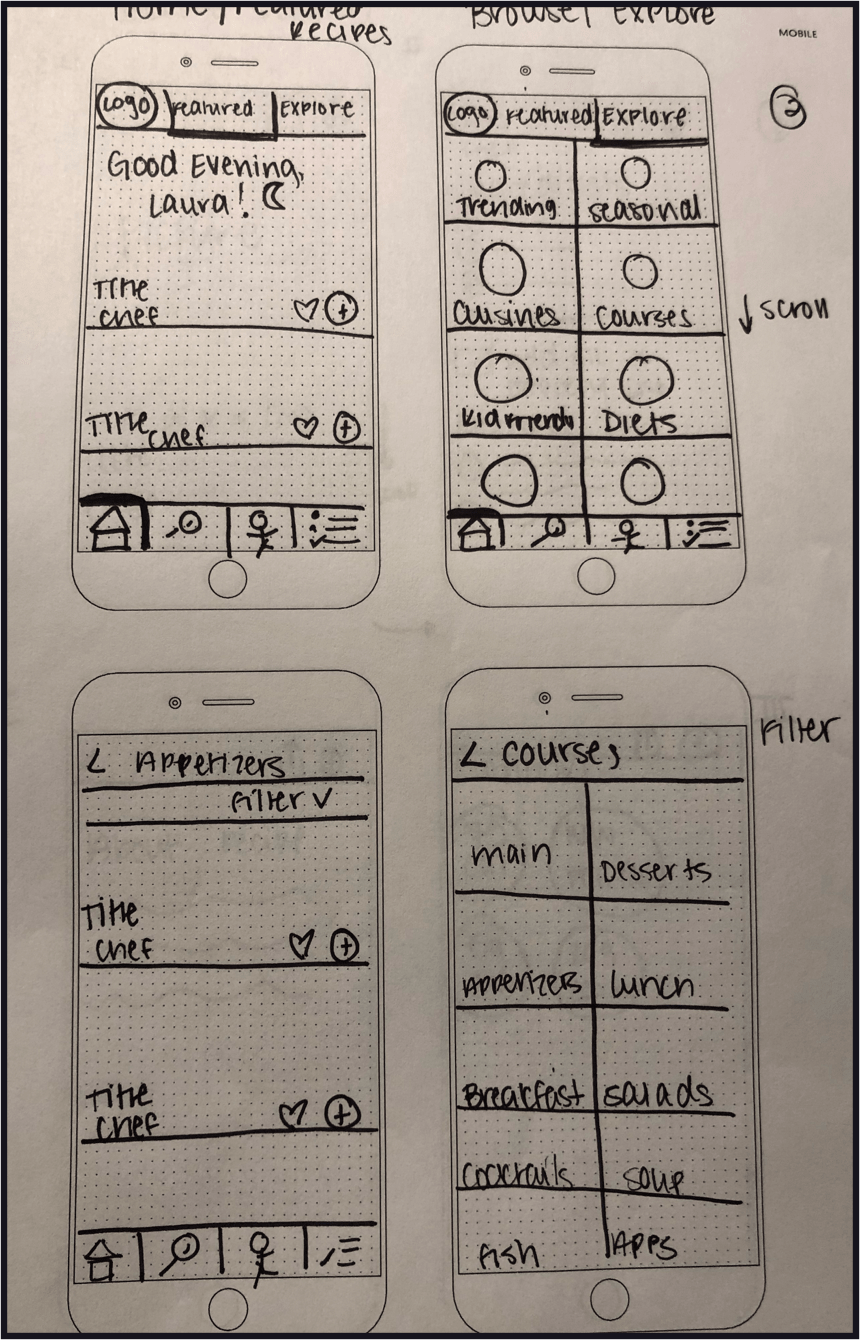 Home/Featured
Recipes
Browse/ Explore
MOBILE
2
Logo Featured Explore
Good Evening,
Laura!
Title
chef
Title
chef
Logo Featured Explore
Trending seasonal
Cuisines Courses
Diets
↓ scroll
< Appetizers
Filter ∨
Title
chef
Title
chef
< Courses
Filter
main Desserts
Appetizers Lunch
Breakfast salads
Cocktails soup
Fish Apps